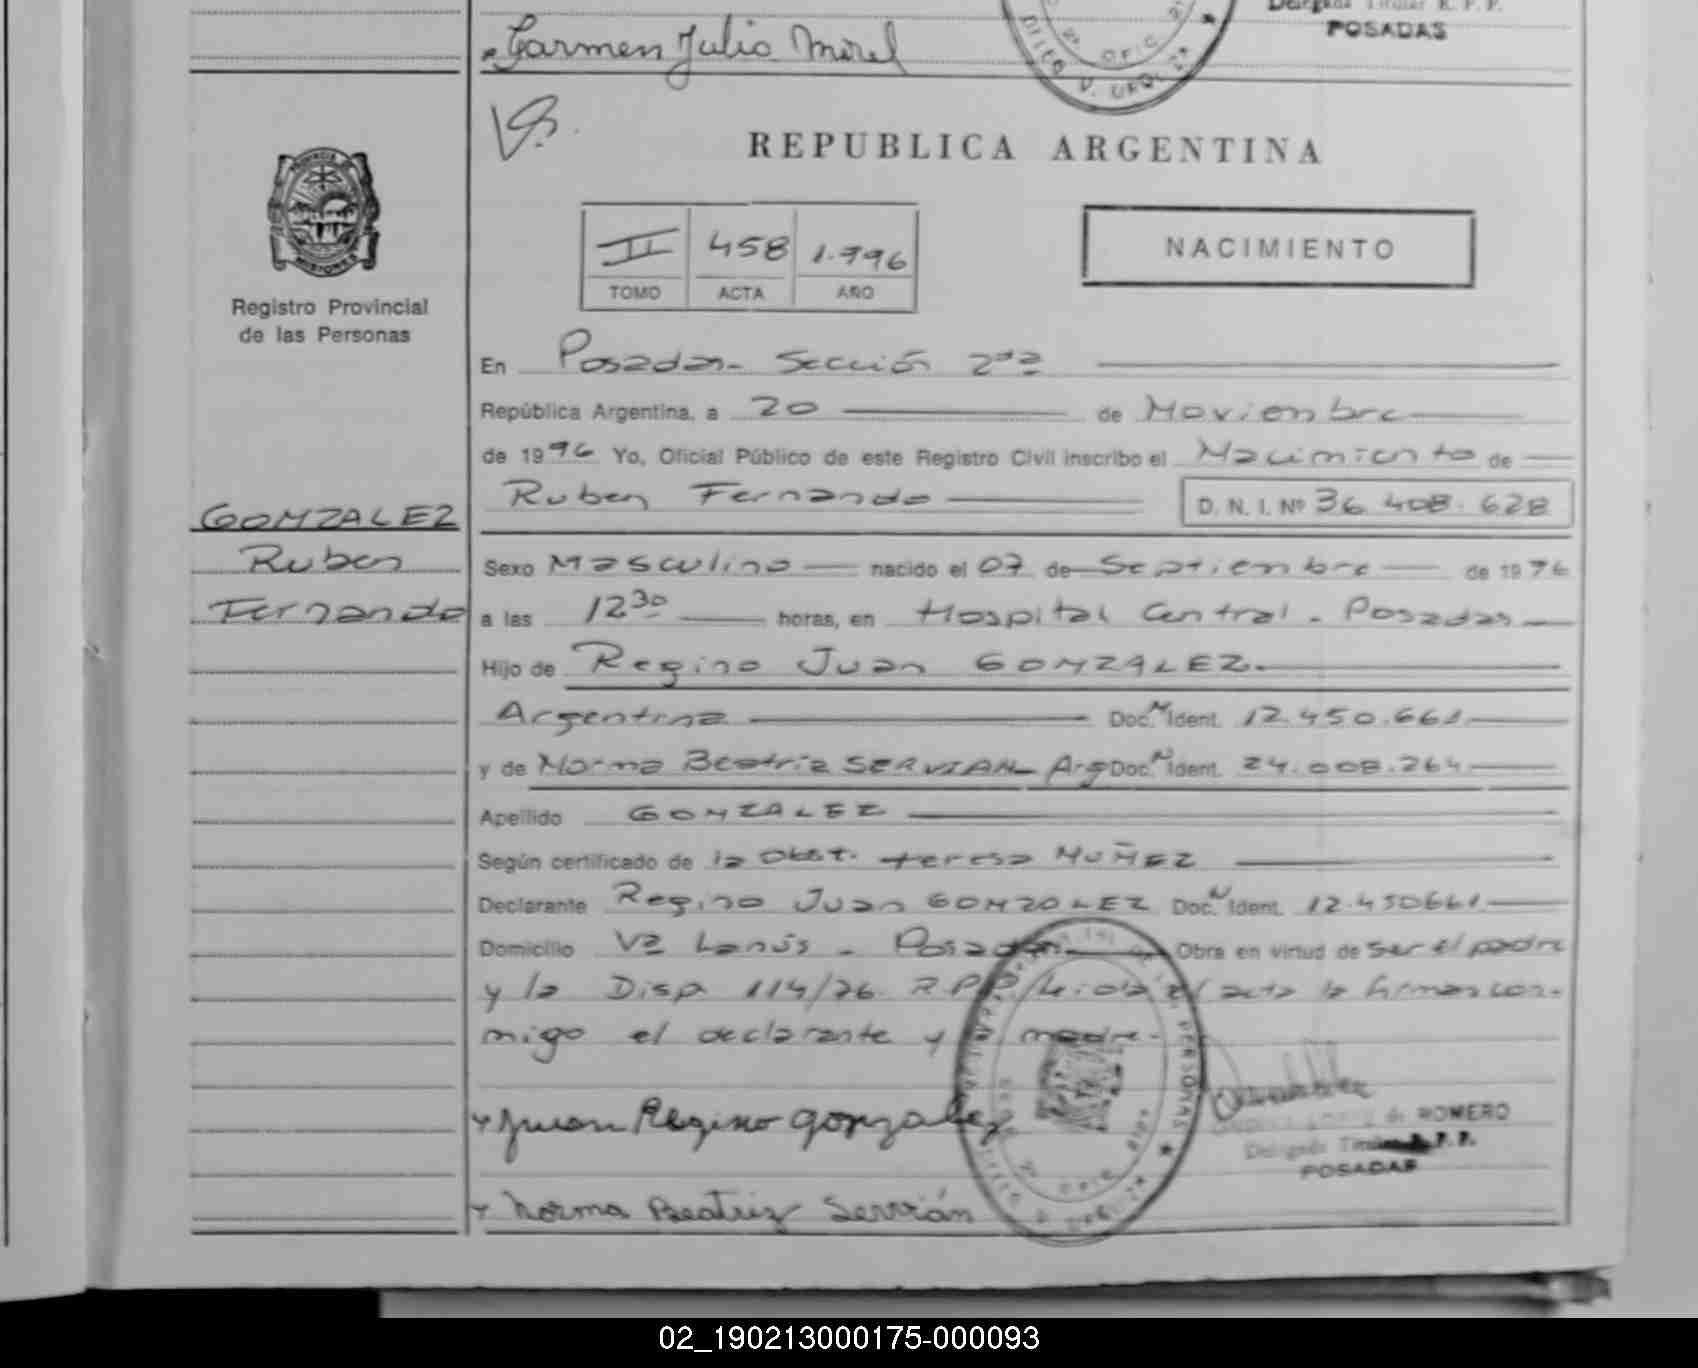 Delegada Titular R. P. P.
POSADAS
Carmen Julia Mirel
OFIC
REPUBLICA ARGENTINA
II 458 1.996
TOMO ACTA AÑO
NACIMIENTO
MISIONES
Registro Provincial
de las Personas
En Posadas- Sección 2da
República Argentina, a 20 de Noviembre
de 1996 Yo, Oficial Público de este Registro Civil inscribo el Nacimiento de
Ruben Fernando D. N. I. Nº 36.408.628
GONZALEZ
Ruben
Fernando
Sexo Masculino nacido el 07 de Septiembre de 1996
a las 12 30 horas, en Hospital Central - Posadas
Hijo de Regino Juan GONZALEZ.
Argentina Doc. N Ident. 12.450.661
y de Norma Beatriz SERVIAN Arg Doc. N Ident. 24.008.264
Apellido GONZALEZ
Según certificado de la Obst. teresa NUÑEZ
Declarante Regino Juan GONZOLEZ Doc. N Ident. 12.450661
Domicilio Va Lanús - Posadas Obra en virtud de ser el padre
y la Disp 114/96 R.P.P. Leida el acta la firman con-
migo el declarante y la madre.
Juan Regino Gonzalez
Norma Beatriz Servián
PERSONAS
de ROMERO
Delegada Titular R. P. P.
POSADAS
02_190213000175-000093